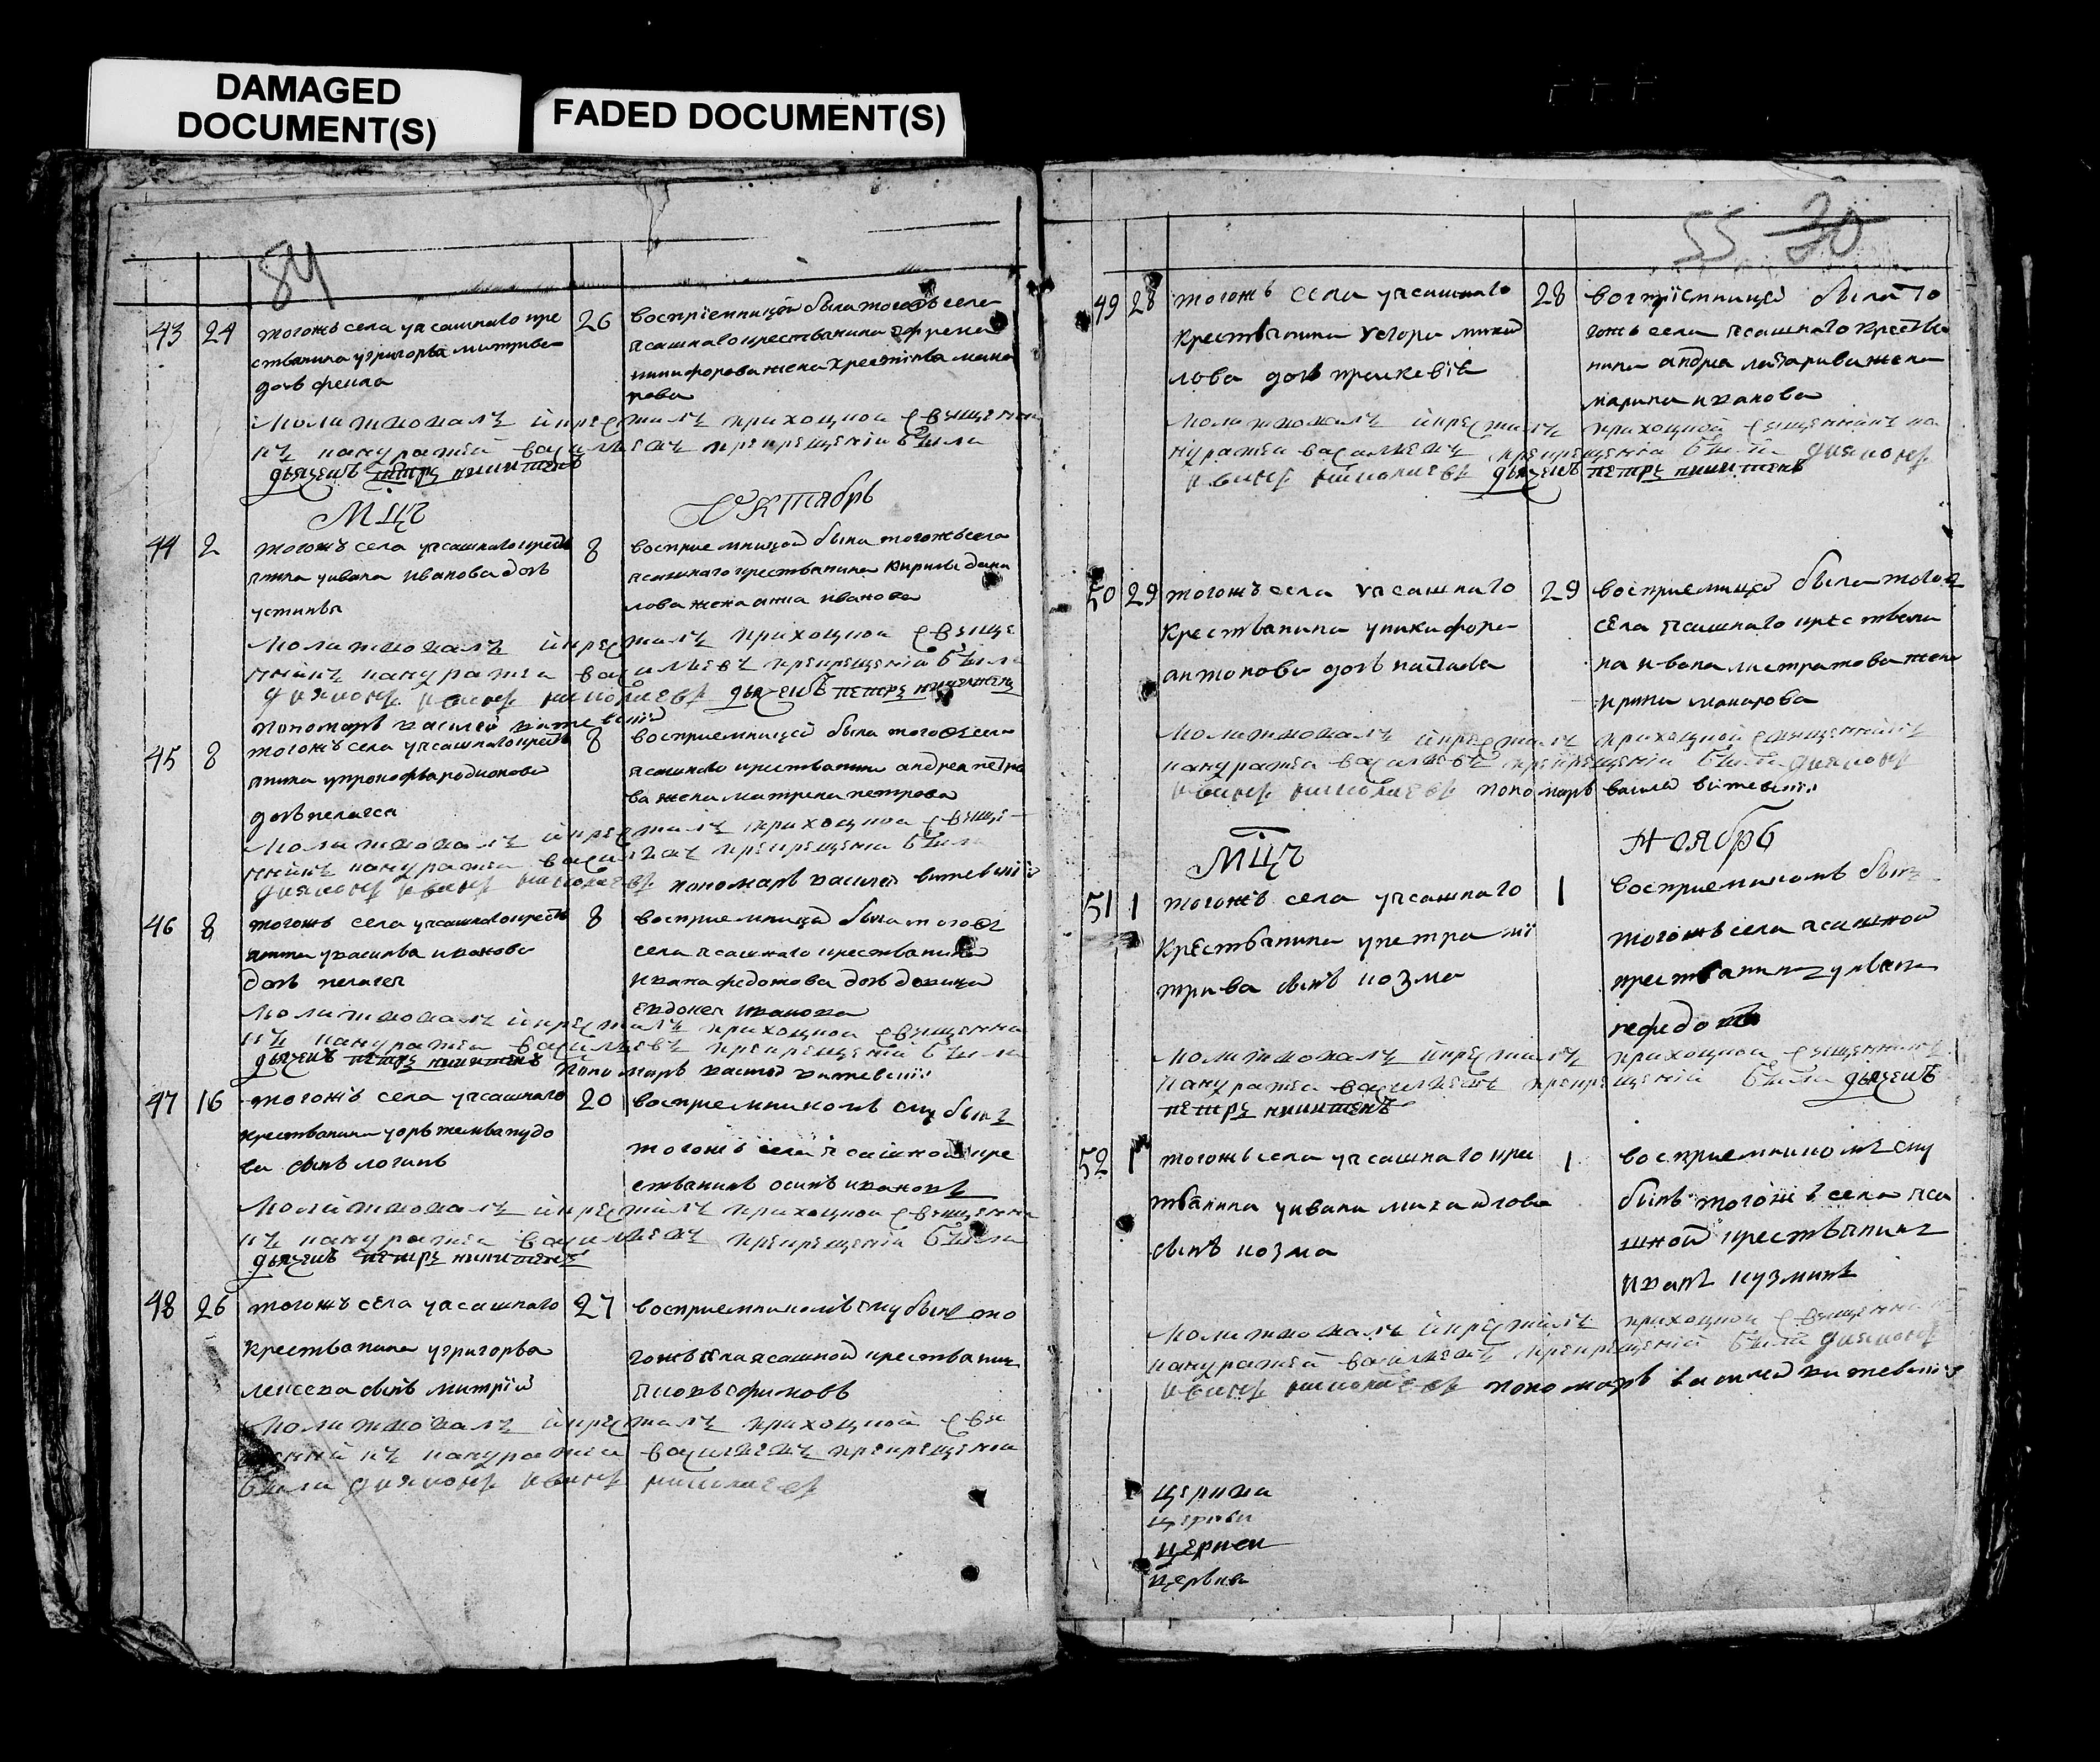 DAMAGED
DOCUMENT(S)
FADED DOCUMENT(S)
84
43 24 тогожъ села у ясашнаго кре
стьянина у григорья митриева
дочь фекла
26 восприемницей была тогожъ села
ясашнаго крестьянина ефрема
никифорова жена
молитвовалъ и крестилъ приходной священни
къ кандратей василиевъ при крещении были
дьячекъ петръ никитинъ
МЦЪ Октябрь
44 2 тогожъ села у ясашнаго кресть
янина у ивана иванова дочь
устинья
8 восприемницей была тогожъ села
ясашнаго крестьянина кирилы дани
лова жена анна иванова
молитвовалъ и крестилъ приходной свяще
нникъ кандратей василиевъ при крещении были
диаконъ иванъ николаевъ дьячекъ петръ никитинъ
пономарь василей
45 8 тогожъ села у ясашнаго кресть
янина у прокофья родионова
дочь пелагея
8 восприемницей была тогожъ села
ясашнаго крестьянина андрея петро
ва жена матрена петрова
молитвовалъ и крестилъ приходной свяще
нникъ кандратей василиевъ при крещении были
диаконъ иванъ николаевъ пономарь василей
46 8 тогожъ села у ясашнаго кресть
янина у василья иванова
дочь пелагея
8 восприемницей была тогожъ
села ясашнаго крестьянина
ивана федотова дочь девица
евдокея иванова
молитвовалъ и крестилъ приходной священни
къ кандратей василиевъ при крещении были
дьячекъ петръ никитинъ пономарь василей
47 16 тогожъ села у ясашнаго
крестьянина у артемья
ва сынъ логинъ
20 восприемникомъ ему былъ
тогожъ села ясашной кре
стьянинъ осипъ ивановъ
молитвовалъ и крестилъ приходной священни
къ кандратей василиевъ при крещении были
дьячекъ петръ никитинъ
48 26 тогожъ села у ясашнаго
крестьянина у григорья
сынъ митрий
27 восприемникомъ ему былъ то
гожъ села ясашной крестьянинъ
молитвовалъ и крестилъ приходной свя
щенникъ кандратей василиевъ при крещении
были диаконъ иванъ николаевъ
55 30
49 28 тогожъ села у ясашнаго
крестьянина у егора
дочь
28 восприемницей была то
гожъ села ясашнаго крестья
нина андрея жена
марина иванова
молитвовалъ и крестилъ приходной священникъ ка
ндратей василиевъ при крещении были диаконъ
иванъ николаевъ дьячекъ петръ никитинъ
50 29 тогожъ села у ясашнаго
крестьянина у никифора
антонова дочь
29 восприемницей была тогожъ
села ясашнаго крестьяни
на ивана жена
ирина макарова
молитвовалъ и крестилъ приходной священникъ
кандратей василиевъ при крещении были диаконъ
иванъ николаевъ пономарь василей
МЦЪ Ноябрь
51 1 тогожъ села у ясашнаго
крестьянина у петра ми
трива сынъ козма
1 восприемникомъ былъ
тогожъ села ясашной
крестьянинъ
молитвовалъ и крестилъ приходной священникъ
кандратей василиевъ при крещении были дьячекъ
петръ никитинъ
52 1 тогожъ села у ясашнаго кре
стьянина у ивана михайлова
сынъ козма
1 восприемникомъ ему
былъ тогожъ села яса
шной крестьянинъ
иванъ кузминъ
молитвовалъ и крестилъ приходной священникъ
кандратей василиевъ при крещении были диаконъ
иванъ николаевъ пономарь василей
церкви
церкви
церкви
церкви